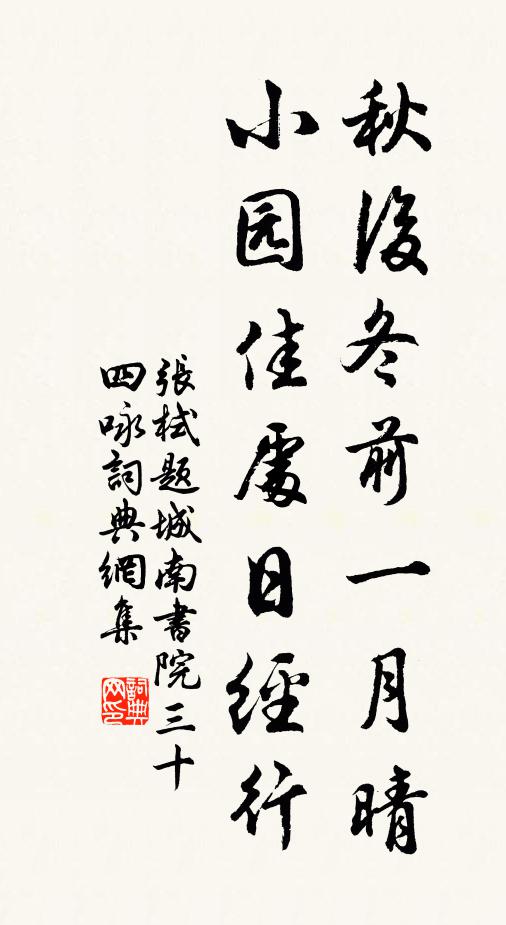 秋後冬前一月晴
小园佳處日經行
張栻题城南書院三十
四咏詞典網集
詞典网印